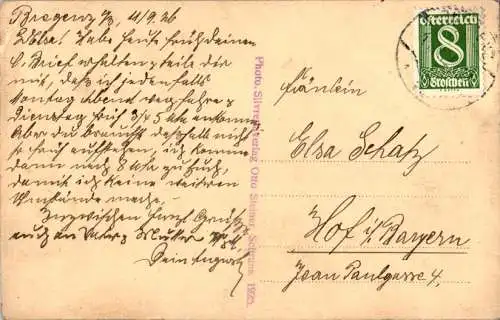 Bregenz, 4/9.26
L. Elsa! Habe heute früh deinen
l. Brief erhalten & teile dir
mit, daß ich jedenfalls
Montag Abend wegfahre &
Dienstag früh 3/4 5 Uhr ankomme.
Aber du brauchst deshalb nicht
so früh aufstehen, ich komme
dann nach 8 Uhr zu Euch,
damit ich keine weiteren
Umstände mache.
Inzwischen herzl. Grüße
auch an Vater & Mutter
Dein
Photo-Silvretta-Verlag Otto Steiner, Schruns 1925.
österreich
8
Groschen
Fräulein
Elsa Schatz
Hof i/ Bayern
Jean Paulgasse 4.